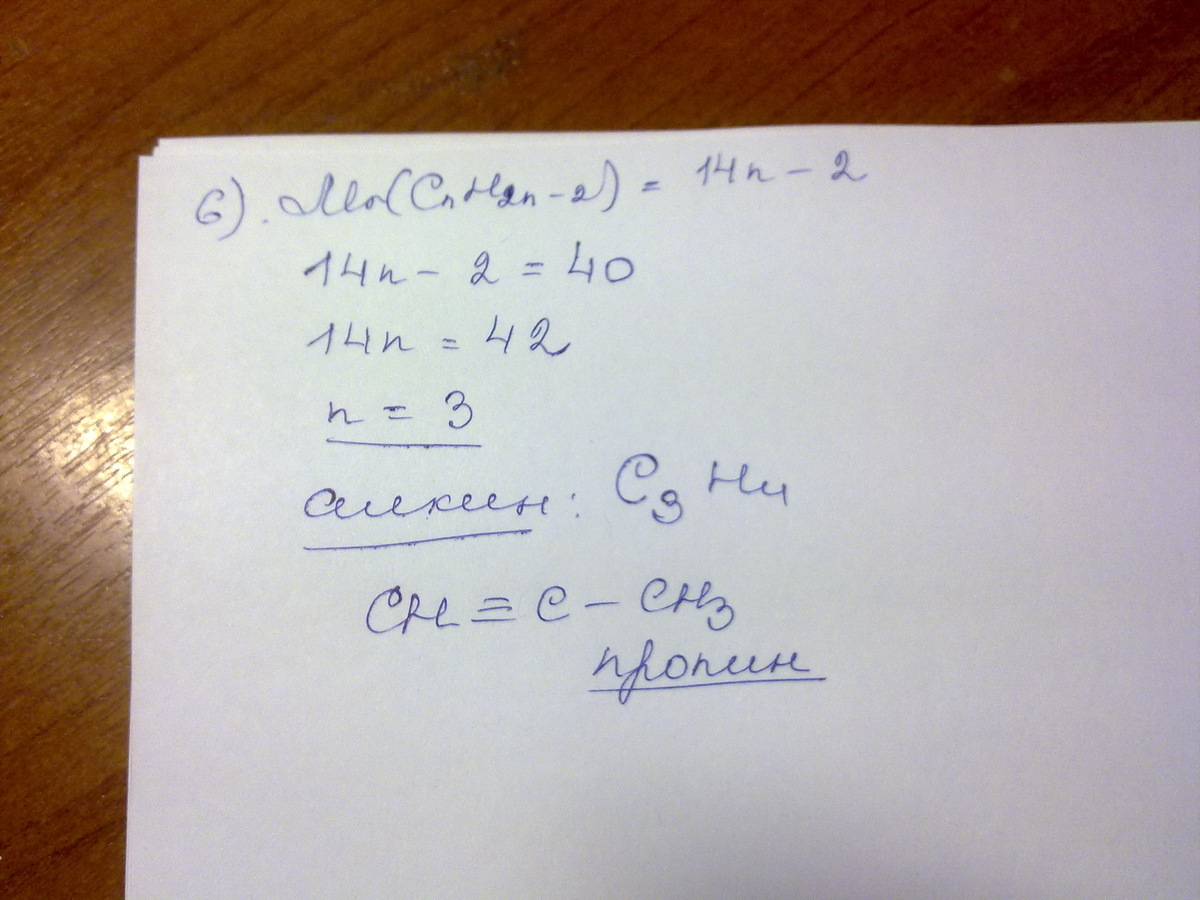 6). Mr(CnH2n-2) = 14n - 2
14n - 2 = 40
14n = 42
n = 3
алкин: C3H4
CH ≡ C - CH3
пропин